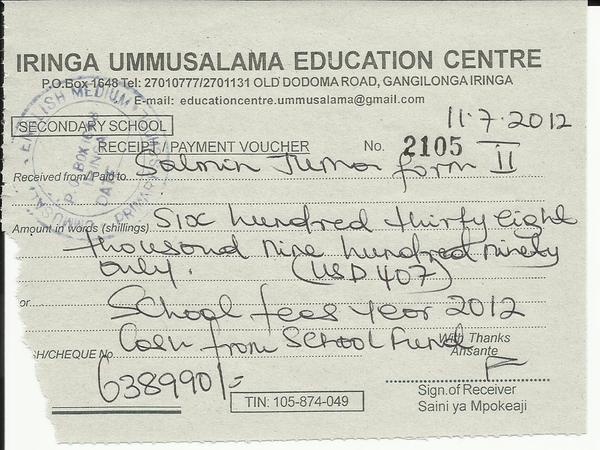 IRINGA UMMUSALAMA EDUCATION CENTRE
P.O.Box 1648 Tel: 27010777/2701131 OLD DODOMA ROAD, GANGILONGA IRINGA
E-mail: educationcentre.ummusalama@gmail.com
11.7.2012
SECONDARY SCHOOL
RECEIPT / PAYMENT VOUCHER No. 2105
Received from/Paid to Salmin Juma form II
Amount in words (shillings) Six hundred thirty eight
thousand nine hundred ninety
only. (USD 407)
or School fees year 2012
SH/CHEQUE No. Cash from School Fund
With Thanks
Ahsante
638990/=
TIN: 105-874-049
Sign.of Receiver
Saini ya Mpokeaji
ENGLISH MEDIUM
P.O. BOX 1648
IRINGA
DATE
PRIMARY